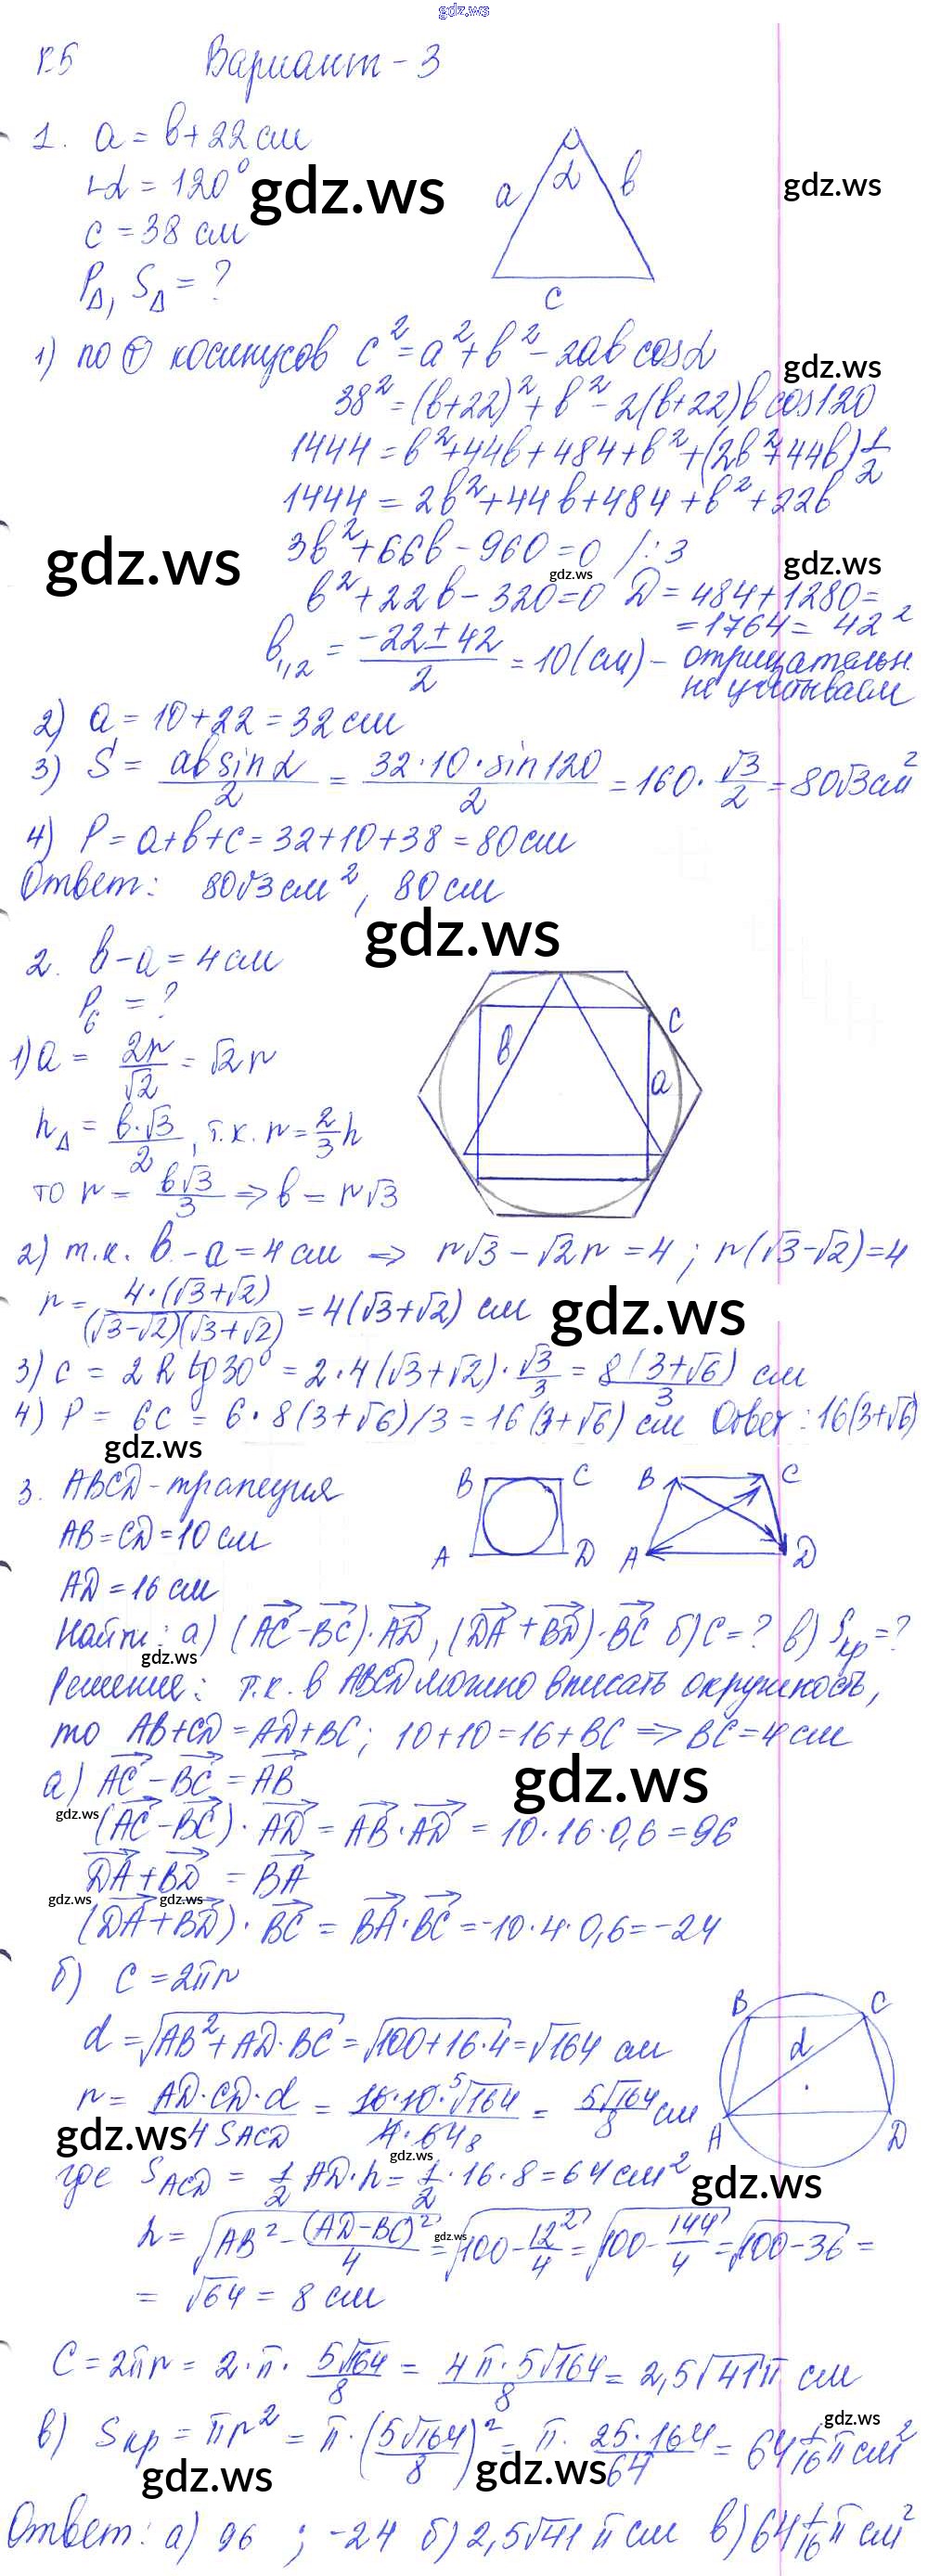 gdz.ws
К5 Вариант - 3
1. a = b + 22 см
∠α = 120°
gdz.ws
gdz.ws
c = 38 см
P∆, S∆ = ?
a α b
c
1) по т косинусов c² = a² + b² - 2ab cosα
gdz.ws
38² = (b+22)² + b² - 2(b+22)b cos120
1444 = b² + 44b + 484 + b² + (2b² + 44b) 1/2
1444 = 2b² + 44b + 484 + b² + 22b
3b² + 66b - 960 = 0 /:3
gdz.ws
gdz.ws
gdz.ws
b² + 22b - 320 = 0 D = 484 + 1280 =
= 1764 = 42²
b₁,₂ = (-22 ± 42)/2 = 10 (см) - отрицательн.
не учитываем
2) a = 10 + 22 = 32 см
3) S = ab sinα/2 = 32·10·sin120/2 = 160·√3/2 = 80√3 см²
4) P = a + b + c = 32 + 10 + 38 = 80 см
Ответ: 80√3 см², 80 см
gdz.ws
2. b - a = 4 см
P₆ = ?
b c a
1) a = 2r/√2 = √2r
h∆ = b·√3/2, т.к. r = 2/3 h
то r = b√3/3 ⇒ b = r√3
2) т.к. b - a = 4 см ⇒ r√3 - √2r = 4; r(√3-√2) = 4
r = 4·(√3+√2)/(√3-√2)(√3+√2) = 4(√3+√2) см
gdz.ws
3) c = 2R tg30° = 2·4(√3+√2)·√3/3 = 8(3+√6)/3 см
4) P = 6c = 6·8(3+√6)/3 = 16(3+√6) см Ответ: 16(3+√6)
gdz.ws
3. ABCD - трапеция
B C
A D
B C
A D
AB = CD = 10 см
AD = 16 см
Найти: а) (AC - BC)·AD, (DA + BD)·BC б) C = ? в) Sкр = ?
gdz.ws
Решение: т.к. в ABCD можно вписать окружность,
то AB + CD = AD + BC; 10 + 10 = 16 + BC ⇒ BC = 4 см
а) AC - BC = AB
gdz.ws
gdz.ws
(AC - BC)·AD = AB·AD = 10·16·0,6 = 96
DA + BD = BA
gdz.ws
gdz.ws
(DA + BD)·BC = BA·BC = -10·4·0,6 = -24
б) C = 2πr
d = √(AB² + AD·BC) = √(100+16·4) = √164 см
B C
d
A D
r = AD·CD·d/4SACD = 16·10·⁵√164/4·64₈ = 5√164/8 см
gdz.ws
gdz.ws
где SACD = 1/2 AD·h = 1/2·16·8 = 64 см²
gdz.ws
h = √(AB² - (AD-BC)²/4) = √(100 - 12²/4) = √(100 - 144/4) = √(100-36) =
gdz.ws
= √64 = 8 см
C = 2πr = 2·π·5√164/8 = 4π·5√164/8 = 2,5√41π см
gdz.ws
в) Sкр = πr² = π·(5√164/8)² = π·25·164/64 = 64 1/16 π см²
gdz.ws
gdz.ws
Ответ: а) 96 ; -24 б) 2,5√41 π см в) 64 1/16 π см²